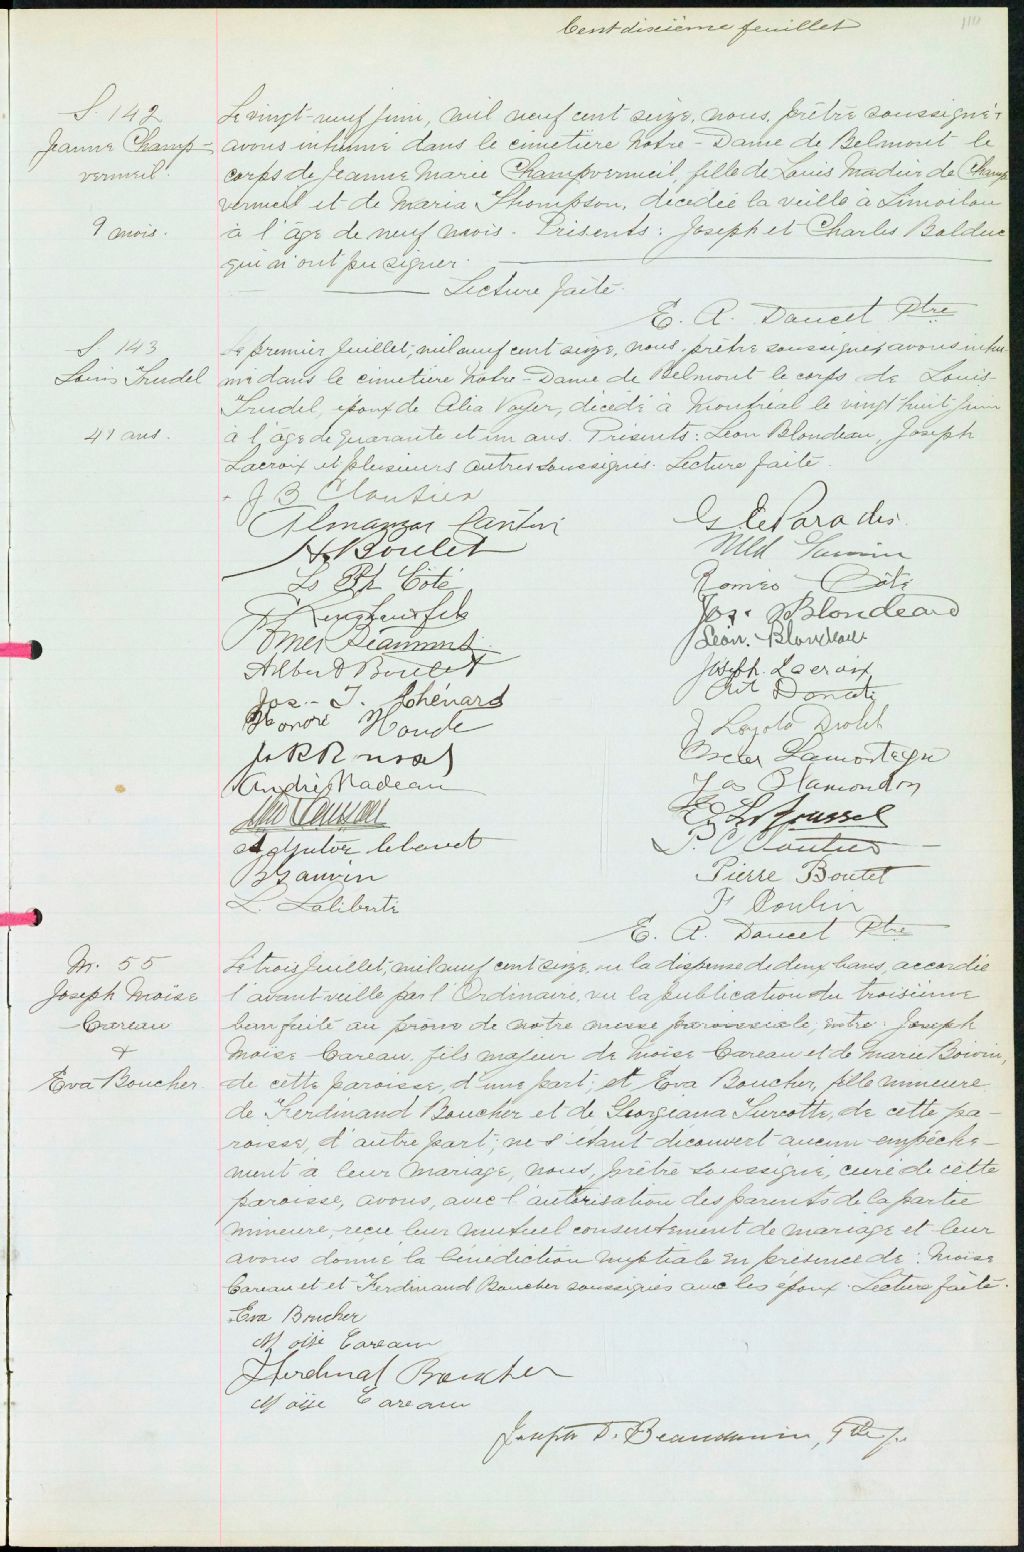 Cent dixième feuillet
110
S. 142
Jeanne Champ-
vermeil.
9 mois.
Le vingt-neuf juin, mil neuf cent seize, nous, prêtre soussigné,
avons inhumé dans le cimetière Notre-Dame de Belmont le
corps de Jeanne Marie Champvermeil, fille de Louis Madur de Champ-
vermeil et de Maria Thompson, décédée la veille à Limoilou
à l'âge de neuf mois. Présents: Joseph et Charles Bolduc
qui n'ont pu signer.
Lecture faite.
E. A. Doucet Ptre
S. 143
Louis Trudel
41 ans.
Le premier juillet, mil neuf cent seize, nous, prêtre soussigné, avons inhu-
mé dans le cimetière Notre-Dame de Belmont le corps de Louis
Trudel, époux de Alia Voyer, décédé à Montréal le vingt huit juin
à l'âge de quarante et un ans. Présents: Léon Blondeau, Joseph
Lacroix et plusieurs autres soussignés. Lecture faite.
J B Cloutier
Almanzar Cantin
Boulet
Ls Ph Côté
Beaumont
Albert Boulet
Jos. T. Chénard
Honoré Houde
André Nadeau
Adjutor
B Gauvin
L. Laliberté
G. E. Paradis.
Roméo Côté
Jos. Blondeau
Léon. Blondeau
Joseph. Lacroix
J Loyola Drolet
Oscar Lamontagne
Jos Plamondon
Roussel
P. C Cloutier
Pierre Boutet
F Poulin
E. A. Doucet Ptre
M. 55
Joseph Moïse
Careau
&
Eva Boucher.
Le trois juillet, mil neuf cent seize, vu la dispense de deux bans, accordée
l'avant veille par l'Ordinaire, vu la publication du troisième
ban faite au prône de notre messe paroissiale, entre: Joseph
Moïse Careau, fils majeur de Moïse Careau et de Marie Boivin,
de cette paroisse, d'une part; et Eva Boucher, fille mineure
de Ferdinand Boucher et de Georgiana Turcotte, de cette pa-
roisse, d'autre part; ne s'étant découvert aucun empêche-
ment à leur mariage, nous, prêtre soussigné, curé de cette
paroisse, avons, avec l'autorisation des parents de la partie
mineure, reçu leur mutuel consentement de mariage et leur
avons donné la bénédiction nuptiale en présence de: Moïse
Careau et et Ferdinand Boucher soussignés avec les époux. Lecture faite.
Eva Boucher
Moïse Careau
Ferdinat Boucher
Moïse Careau
Joseph D. Beaudouin, Ptre